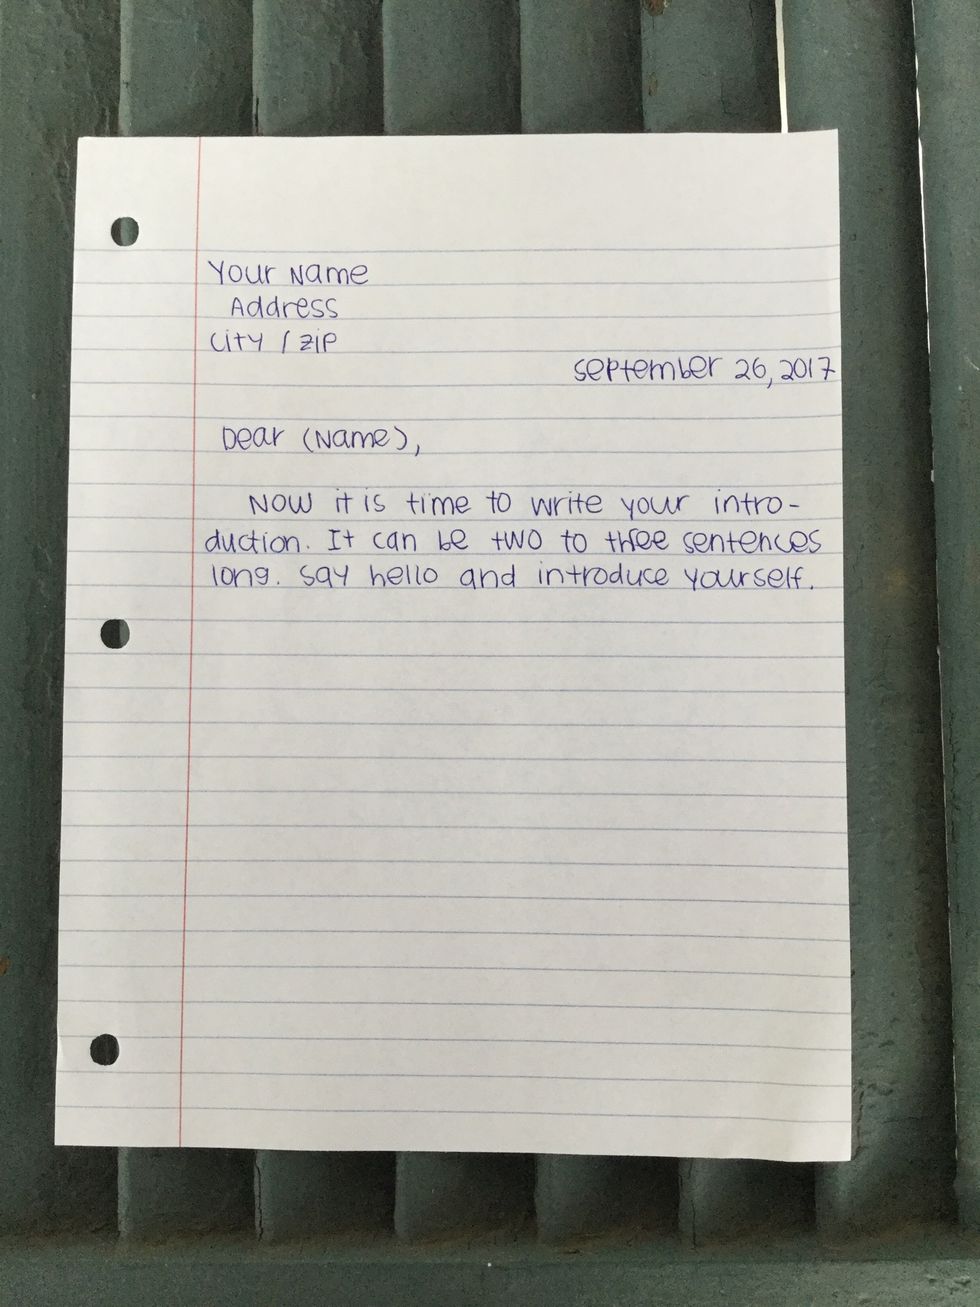 Your Name
Address
City / Zip
September 26, 2017
Dear (Name),
Now it is time to write your intro-
duction. It can be two to three sentences
long. Say hello and introduce yourself.